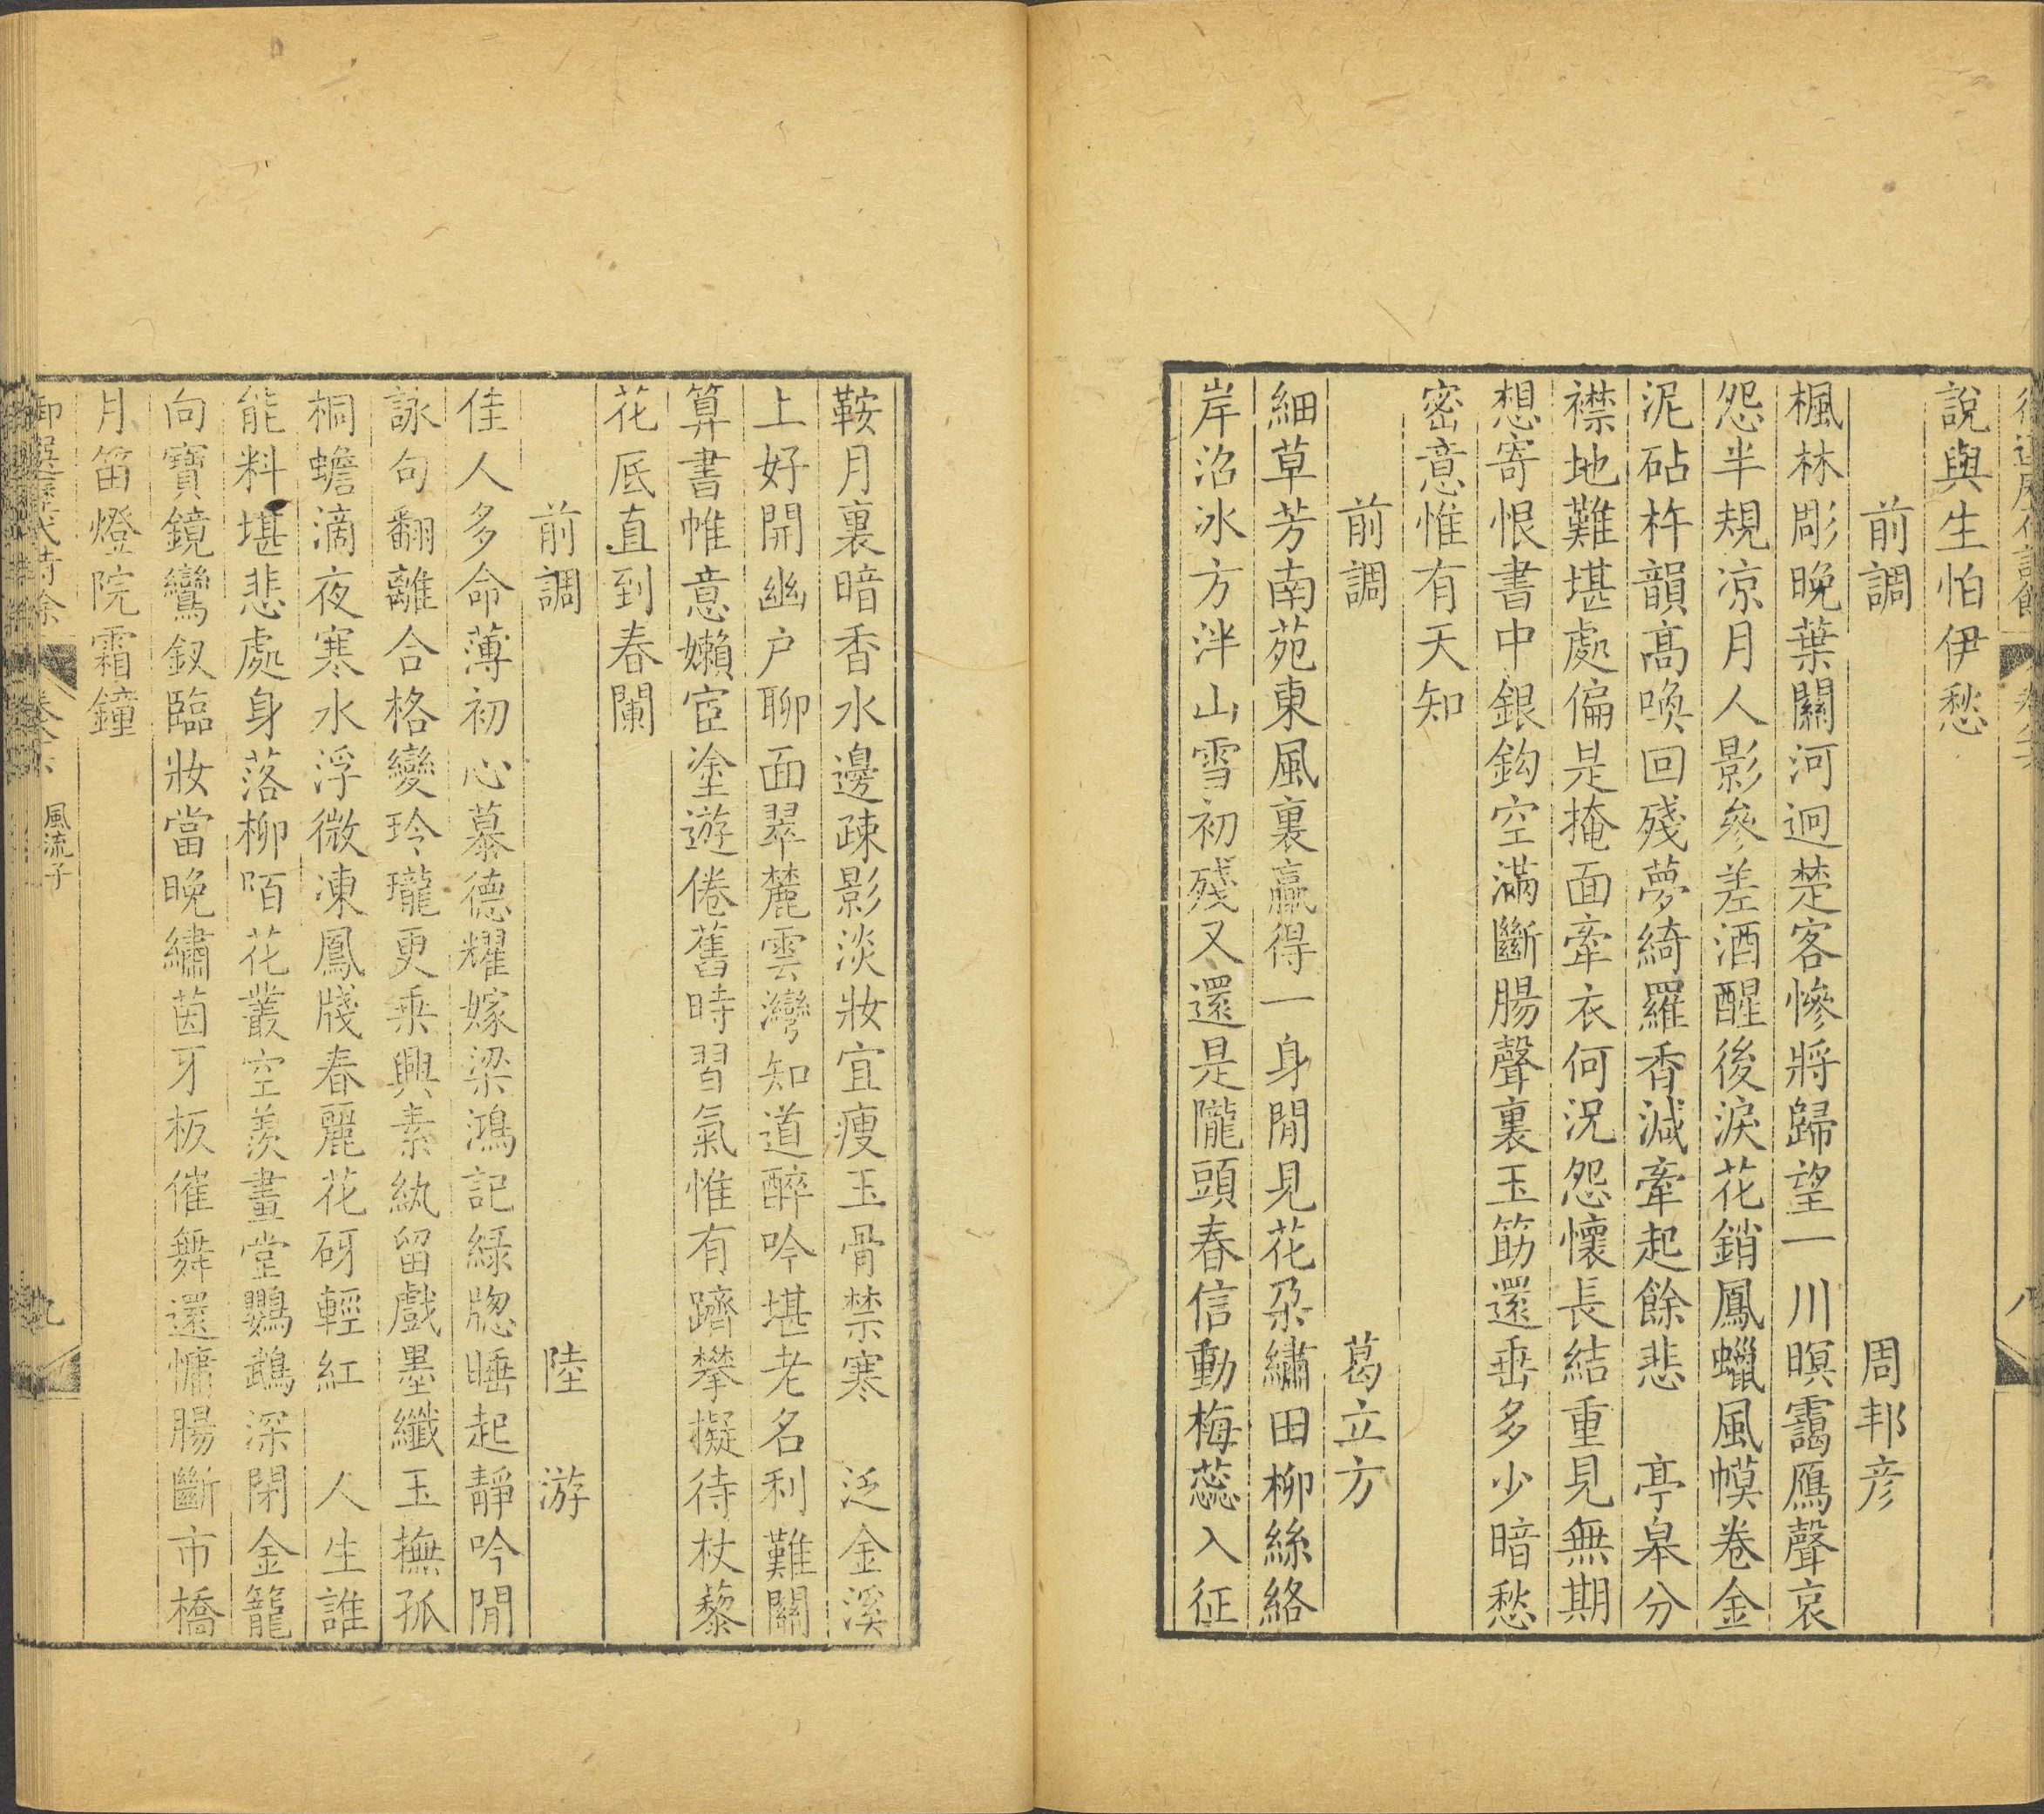 說與生怕伊愁
前調 周邦彦
楓林彫晚葉關河迥楚客慘將歸望一川暝靄鴈聲哀
怨半規凉月人影參差酒醒後淚花銷鳳蠟風幙卷金
泥砧杵韻高喚回殘夢綺羅香減牽起餘悲 亭皋分
襟地難堪處偏是掩面牽衣何況怨懷長結重見無期
想寄恨書中銀鈎空滿斷腸聲裏玉筯還垂多少暗愁
密意惟有天知
前調 葛立方
細草芳南苑東風裏贏得一身閒見花朶繡田柳絲絡
岸沼冰方泮山雪初殘又還是隴頭春信動梅蕊入征
鞍月裏暗香水邊疎影淡妝宜瘦玉骨禁寒 泛金溪
上好開幽户聊面翠麓雲灣知道醉吟堪老名利難關
算書帷意嬾宦塗遊倦舊時習氣惟有躋攀擬待杖藜
花底直到春闌
前調 陸 游
佳人多命薄初心慕德耀嫁梁鴻記緑牕睡起靜吟閒
詠句翻離合格變玲瓏更乘興素紈留戲墨纖玉撫孤
桐蟾滴夜寒水浮微凍鳳牋春麗花砑輕紅 人生誰
能料堪悲處身落柳陌花叢空羡畫堂鸚鵡深閉金籠
向寶鏡鸞釵臨妝當晚繡茵牙板催舞還慵腸斷市橋
月笛燈院霜鐘
風流子